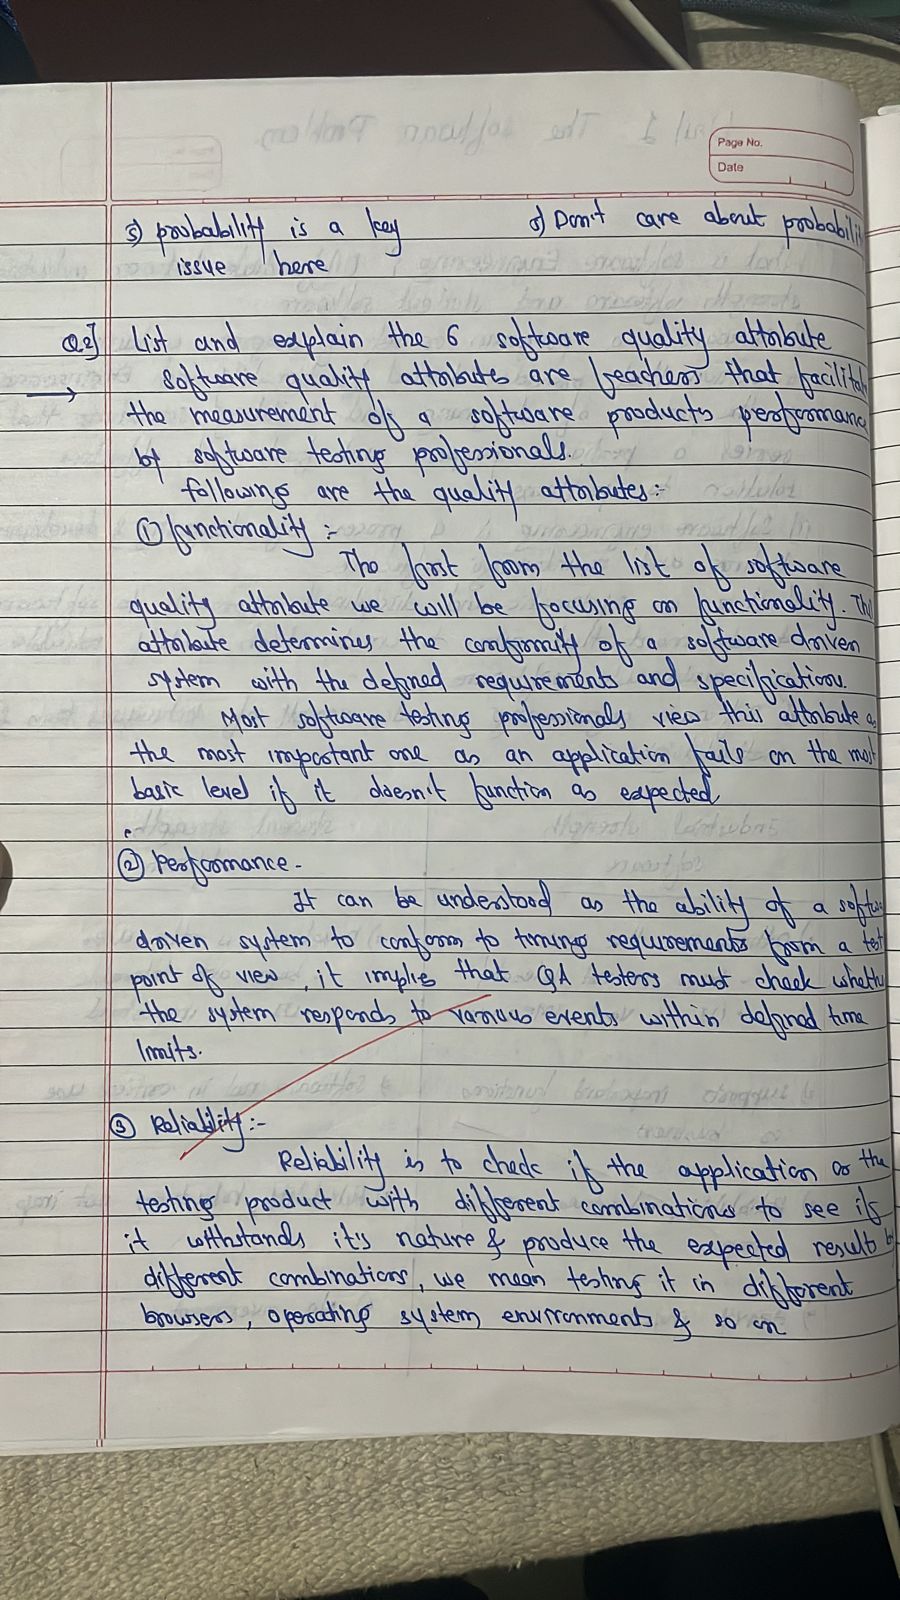 Page No.
Date
5) probability is a key 5) Don't care about probabili
issue here
Q.2] List and explain the 6 software quality attribute
→ Software quality attributes are feachers that facilita
the measurement of a software products performanc
by software testing professionals.
following are the quality attributes:-
① functionality :-
The first from the list of software
quality attribute we will be focusing on functionality. Th
attribute determines the conformity of a software driven
system with the defined requirements and specification.
Most software testing professionals view this attribute as
the most important one as an application fails on the most
basic level if it doesn't function as expected
② Performance -
It can be understood as the ability of a softw
driven system to conform to timing requirements from a test
point of view, it implies that QA testers must check wheth
the system responds to various events within defined time
limits.
③ Reliability:-
Reliability is to check if the application or the
testing product with different combinations to see if
it withstands it's nature & produce the expected result by
different combinations, we mean testing it in different
browsers, operating system environments & so on